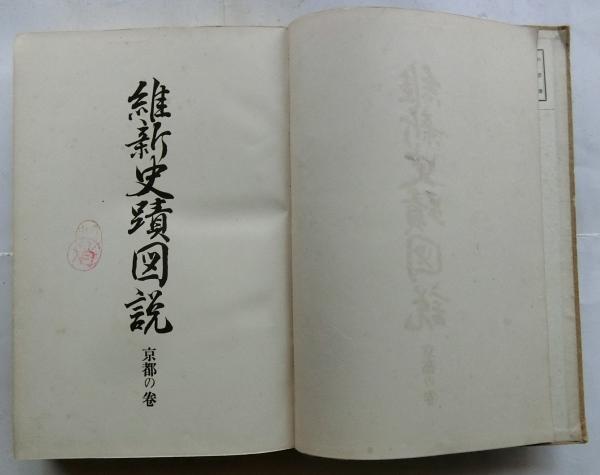 維新史蹟図説
京都の巻